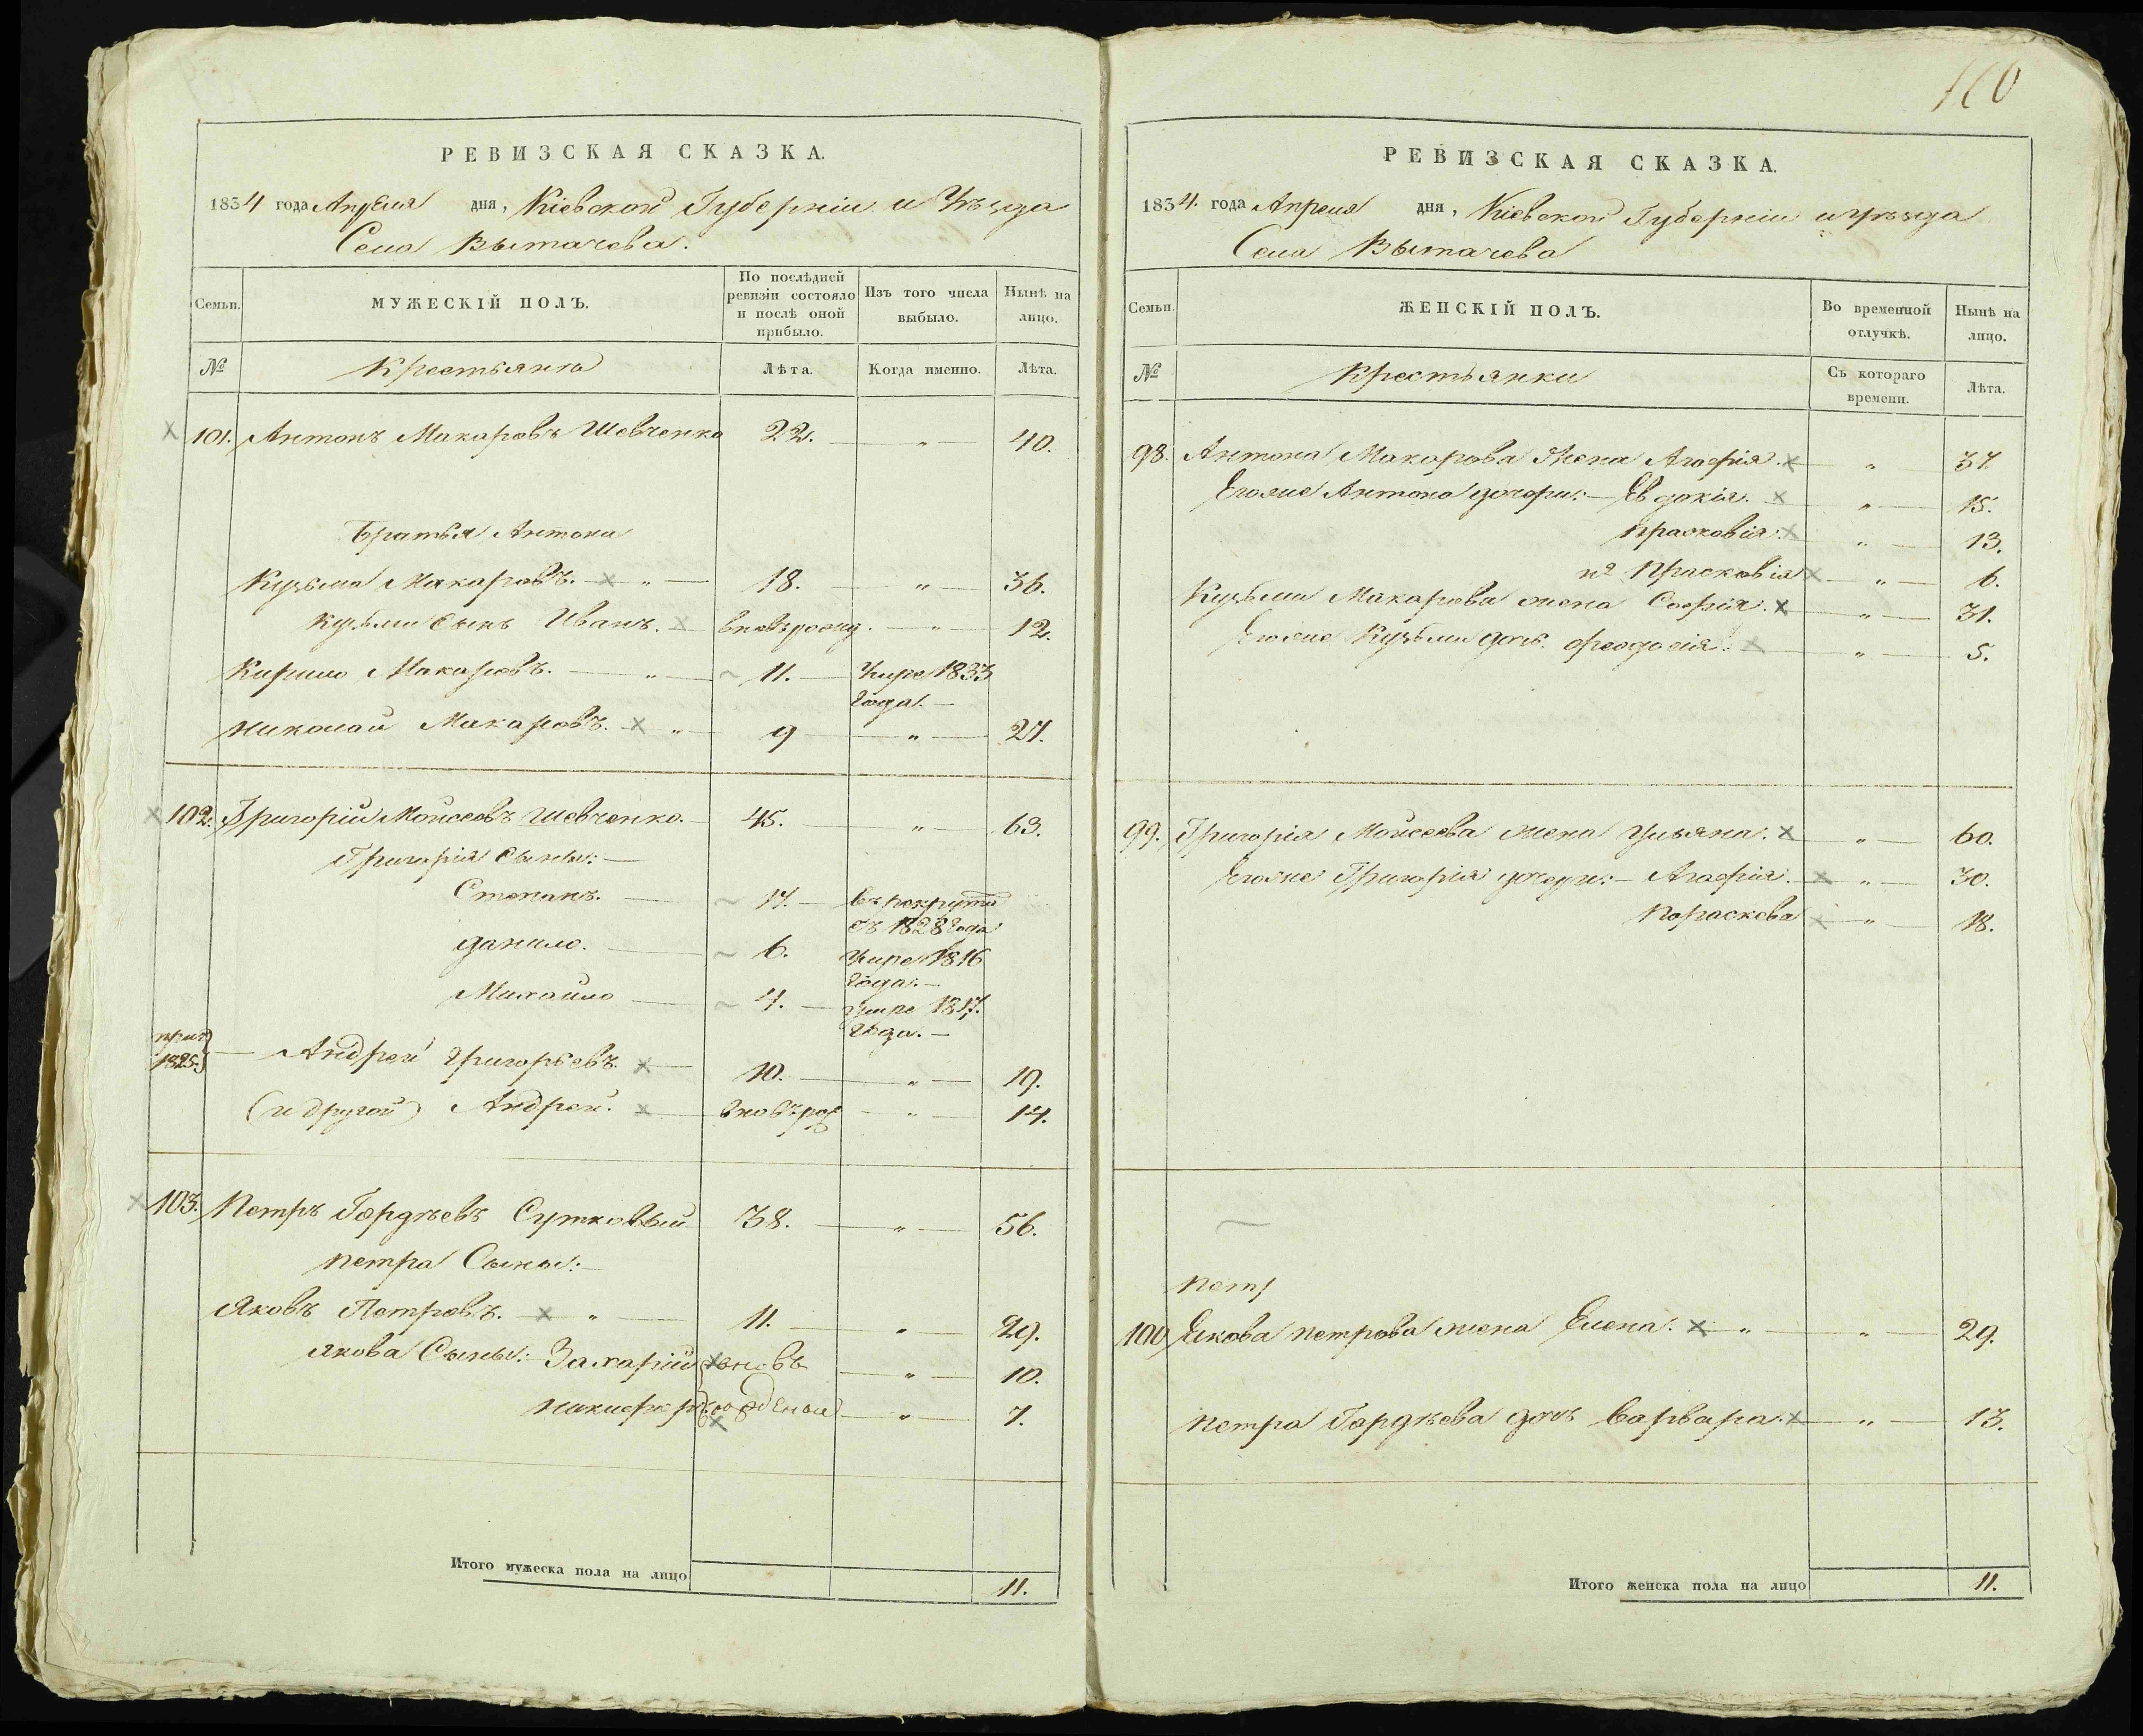 РЕВИЗСКАЯ СКАЗКА.
1834 года Апреля дня, Кіевской Губерніи и Уѣзда
Села Вытачева.
Семьи.
МУЖЕСКІЙ ПОЛЪ.
По послѣдней ревизіи состояло и послѣ оной прибыло.
Изъ того числа выбыло.
Нынѣ на лицо.
№
Крестьяна
Лѣта.
Когда именно.
Лѣта.
101. Антонъ Макаровъ Шевченко 22. — „ — 40.
Братья Антона
Кузьма Макаровъ. — „ — 18. — „ — 36.
Кузьми Сынъ Иванъ. вновьрожд. — „ — 12.
Кирило Макаровъ. — „ — 11. — Умре 1833
Года. —
Николай Макаровъ. „ 9 — „ — 27.
102. Григорій Моисеовъ Шевченко. — 45. — „ — 63.
Григорія Сыны: —
Степанъ. — 17. — въ рекруты
съ 1828 Года
Данило. — 6. Умре 1816
Года. —
Михайло — 4. — умре 1817.
Года. —
1825. — Андрей Григорьевъ. — 10. — „ — 19.
(и другой) Андрей. — вновьрож — „ — 14.
103. Петръ Гордѣевъ Сутковый 38. — „ — 56.
Петра Сыны: —
Яковъ Петровъ. „ — 11. — „ — 29.
Якова Сыны: — Захарій вновь — „ — 10.
Никифоръ рожденыи — „ — 7.
Итого мужеска пола на лицо 11.
110
РЕВИЗСКАЯ СКАЗКА.
1834. года Апреля дня, Кіевской Губерніи и уѣзда
Села Вытачева
Семьи.
ЖЕНСКІЙ ПОЛЪ.
Во временной отлучкѣ.
Нынѣ на лицо.
№
Крестьянки
Съ котораго времени.
Лѣта.
98. Антона Макарова Жена Агафія. — „ — 37.
Егояне Антона дочери: — Евдокія. — „ — 15.
Прасковія. — „ — 13.
и 2 Прасковія — „ — 6.
Кузьми Макарова жена Софія. — „ — 31.
Егояне Кузьми дочь. Феодосія. — „ — 5.
99. Григорія Моисеева жена Ульяна. — „ — 60.
Егояне Григорія дочери: — Агафія. — „ — 30.
Пораскева — „ — 18.
Петр
100 Якова Петрова жена Елена. „ — „ — 29.
Петра Гордѣева дочь Варвара. — „ — 13.
Итого женска пола на лицо 11.